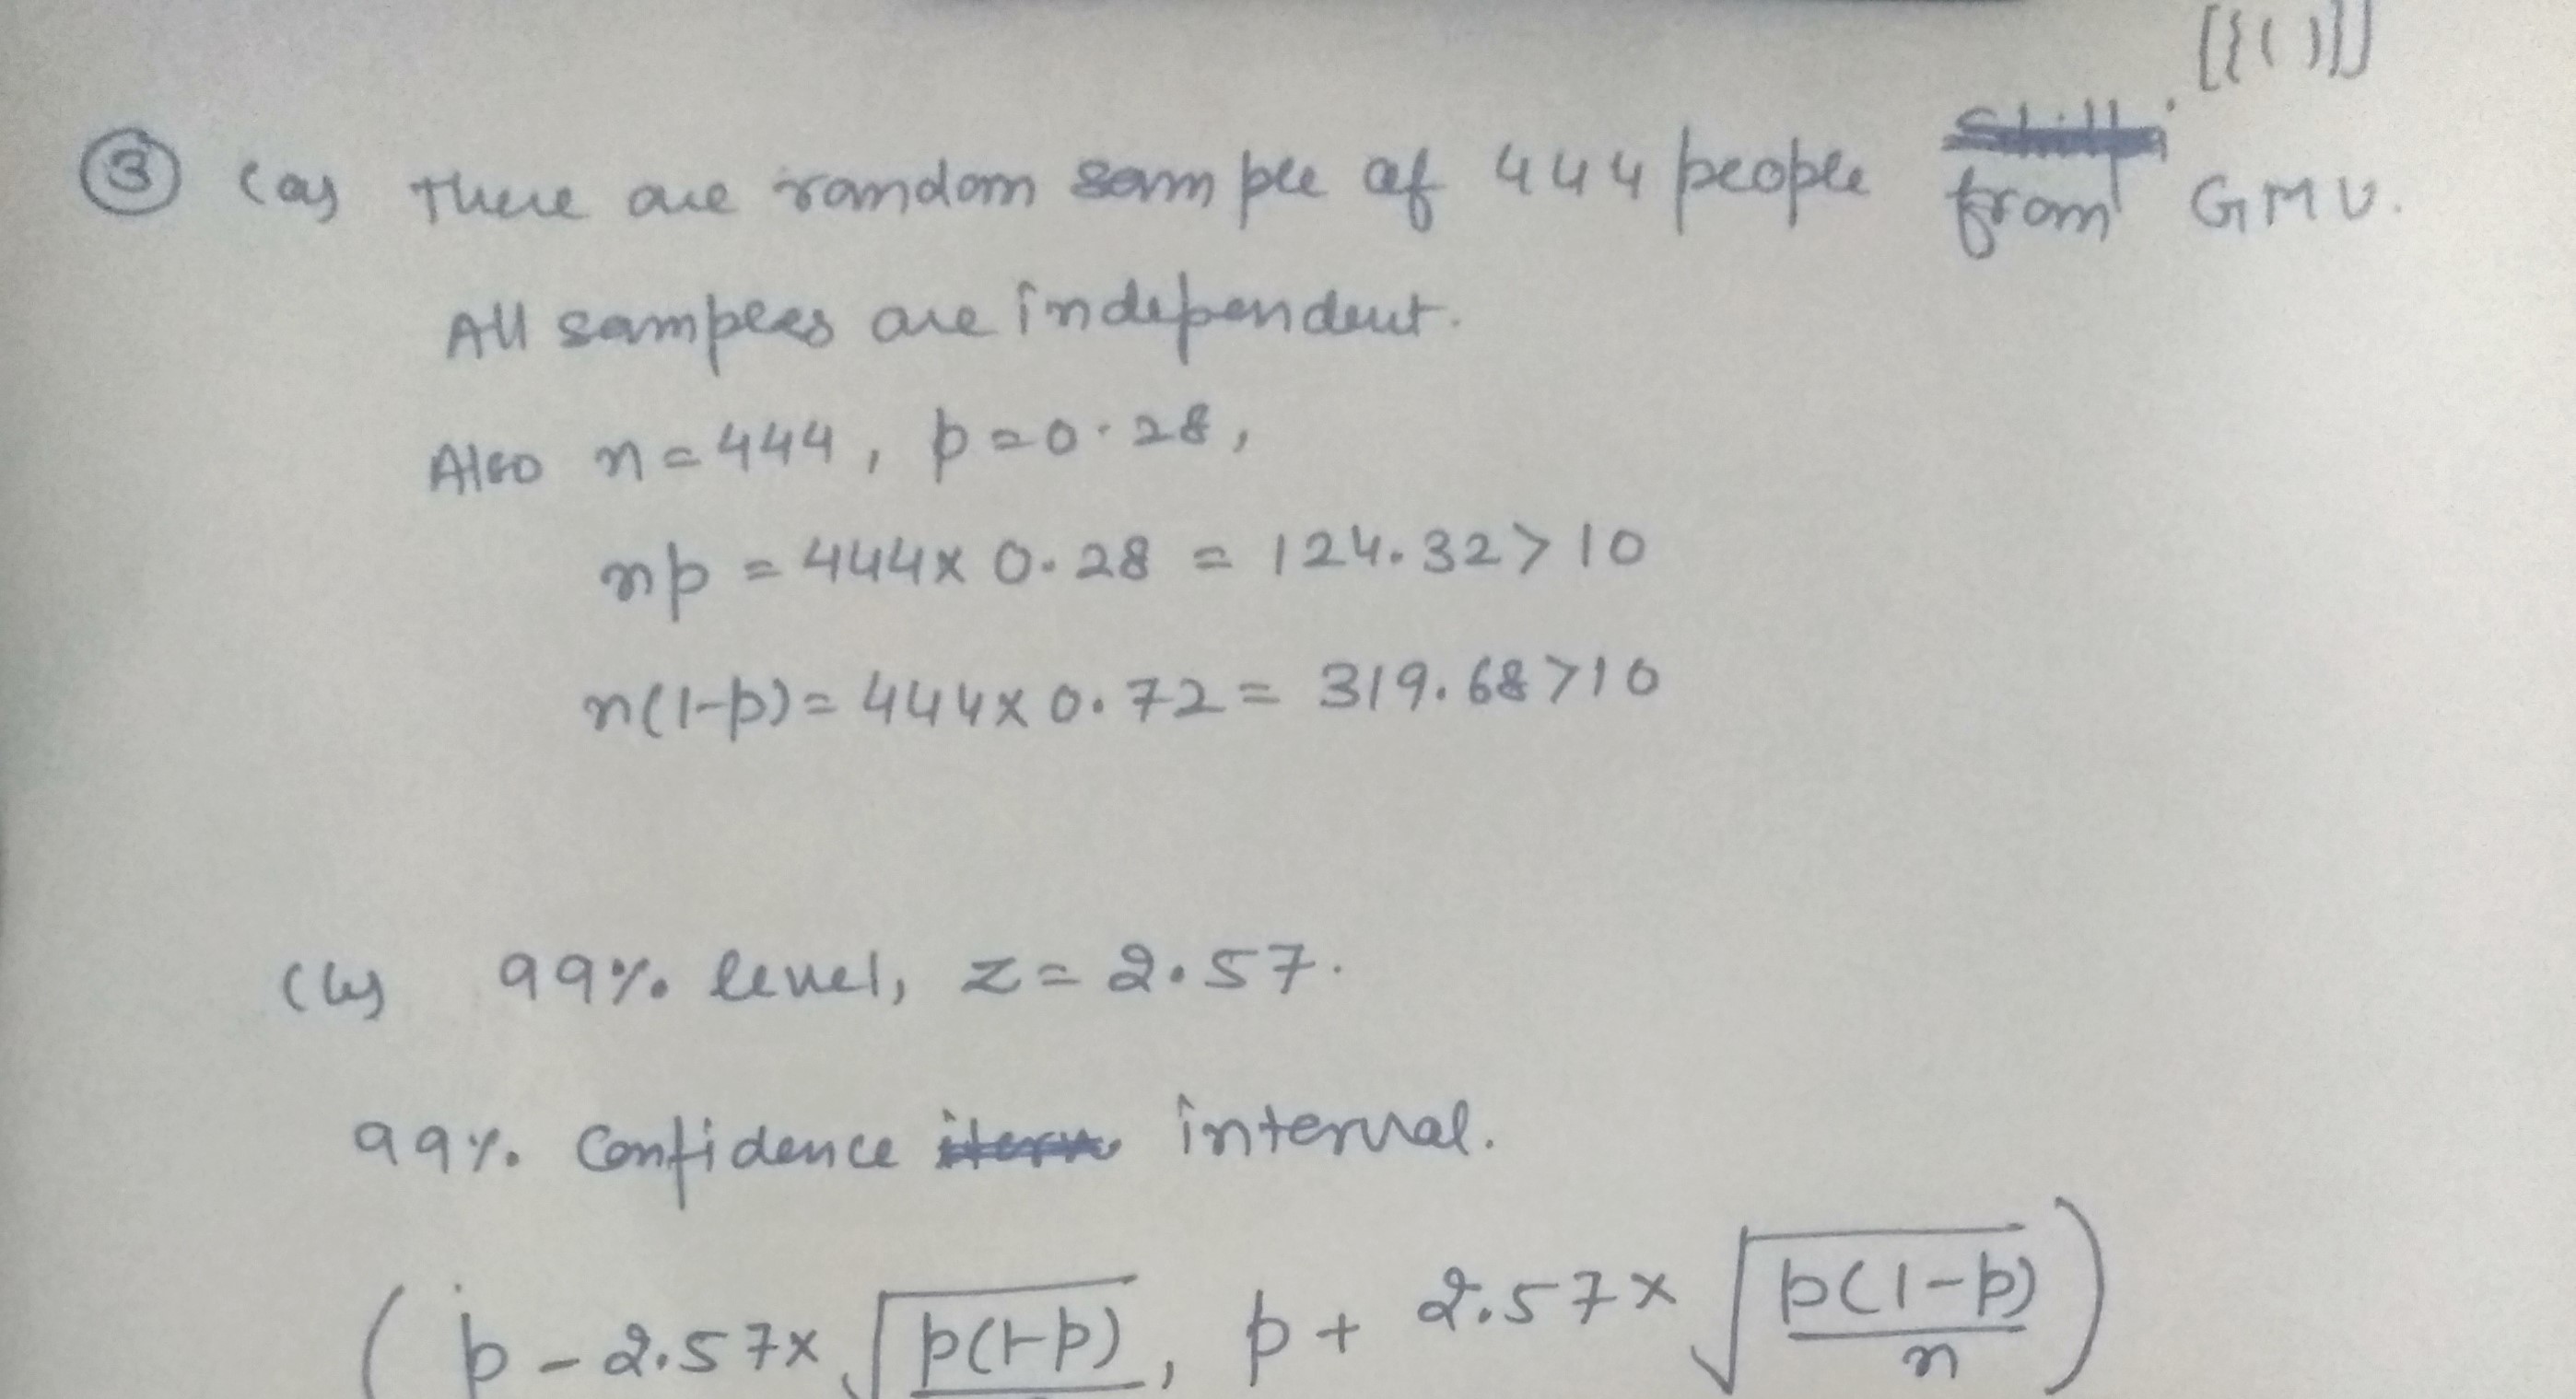 [{()}]
③ (a) There are random sample of 444 people from GMU.
All samples are independent.
Also n = 444, p = 0.28,
np = 444 x 0.28 = 124.32 > 10
n(1-p) = 444 x 0.72 = 319.68 > 10
(b) 99% level, z = 2.57.
99% Confidence interval.
(p - 2.57 x √(p(1-p)), p + 2.57 x √(p(1-p)/n))